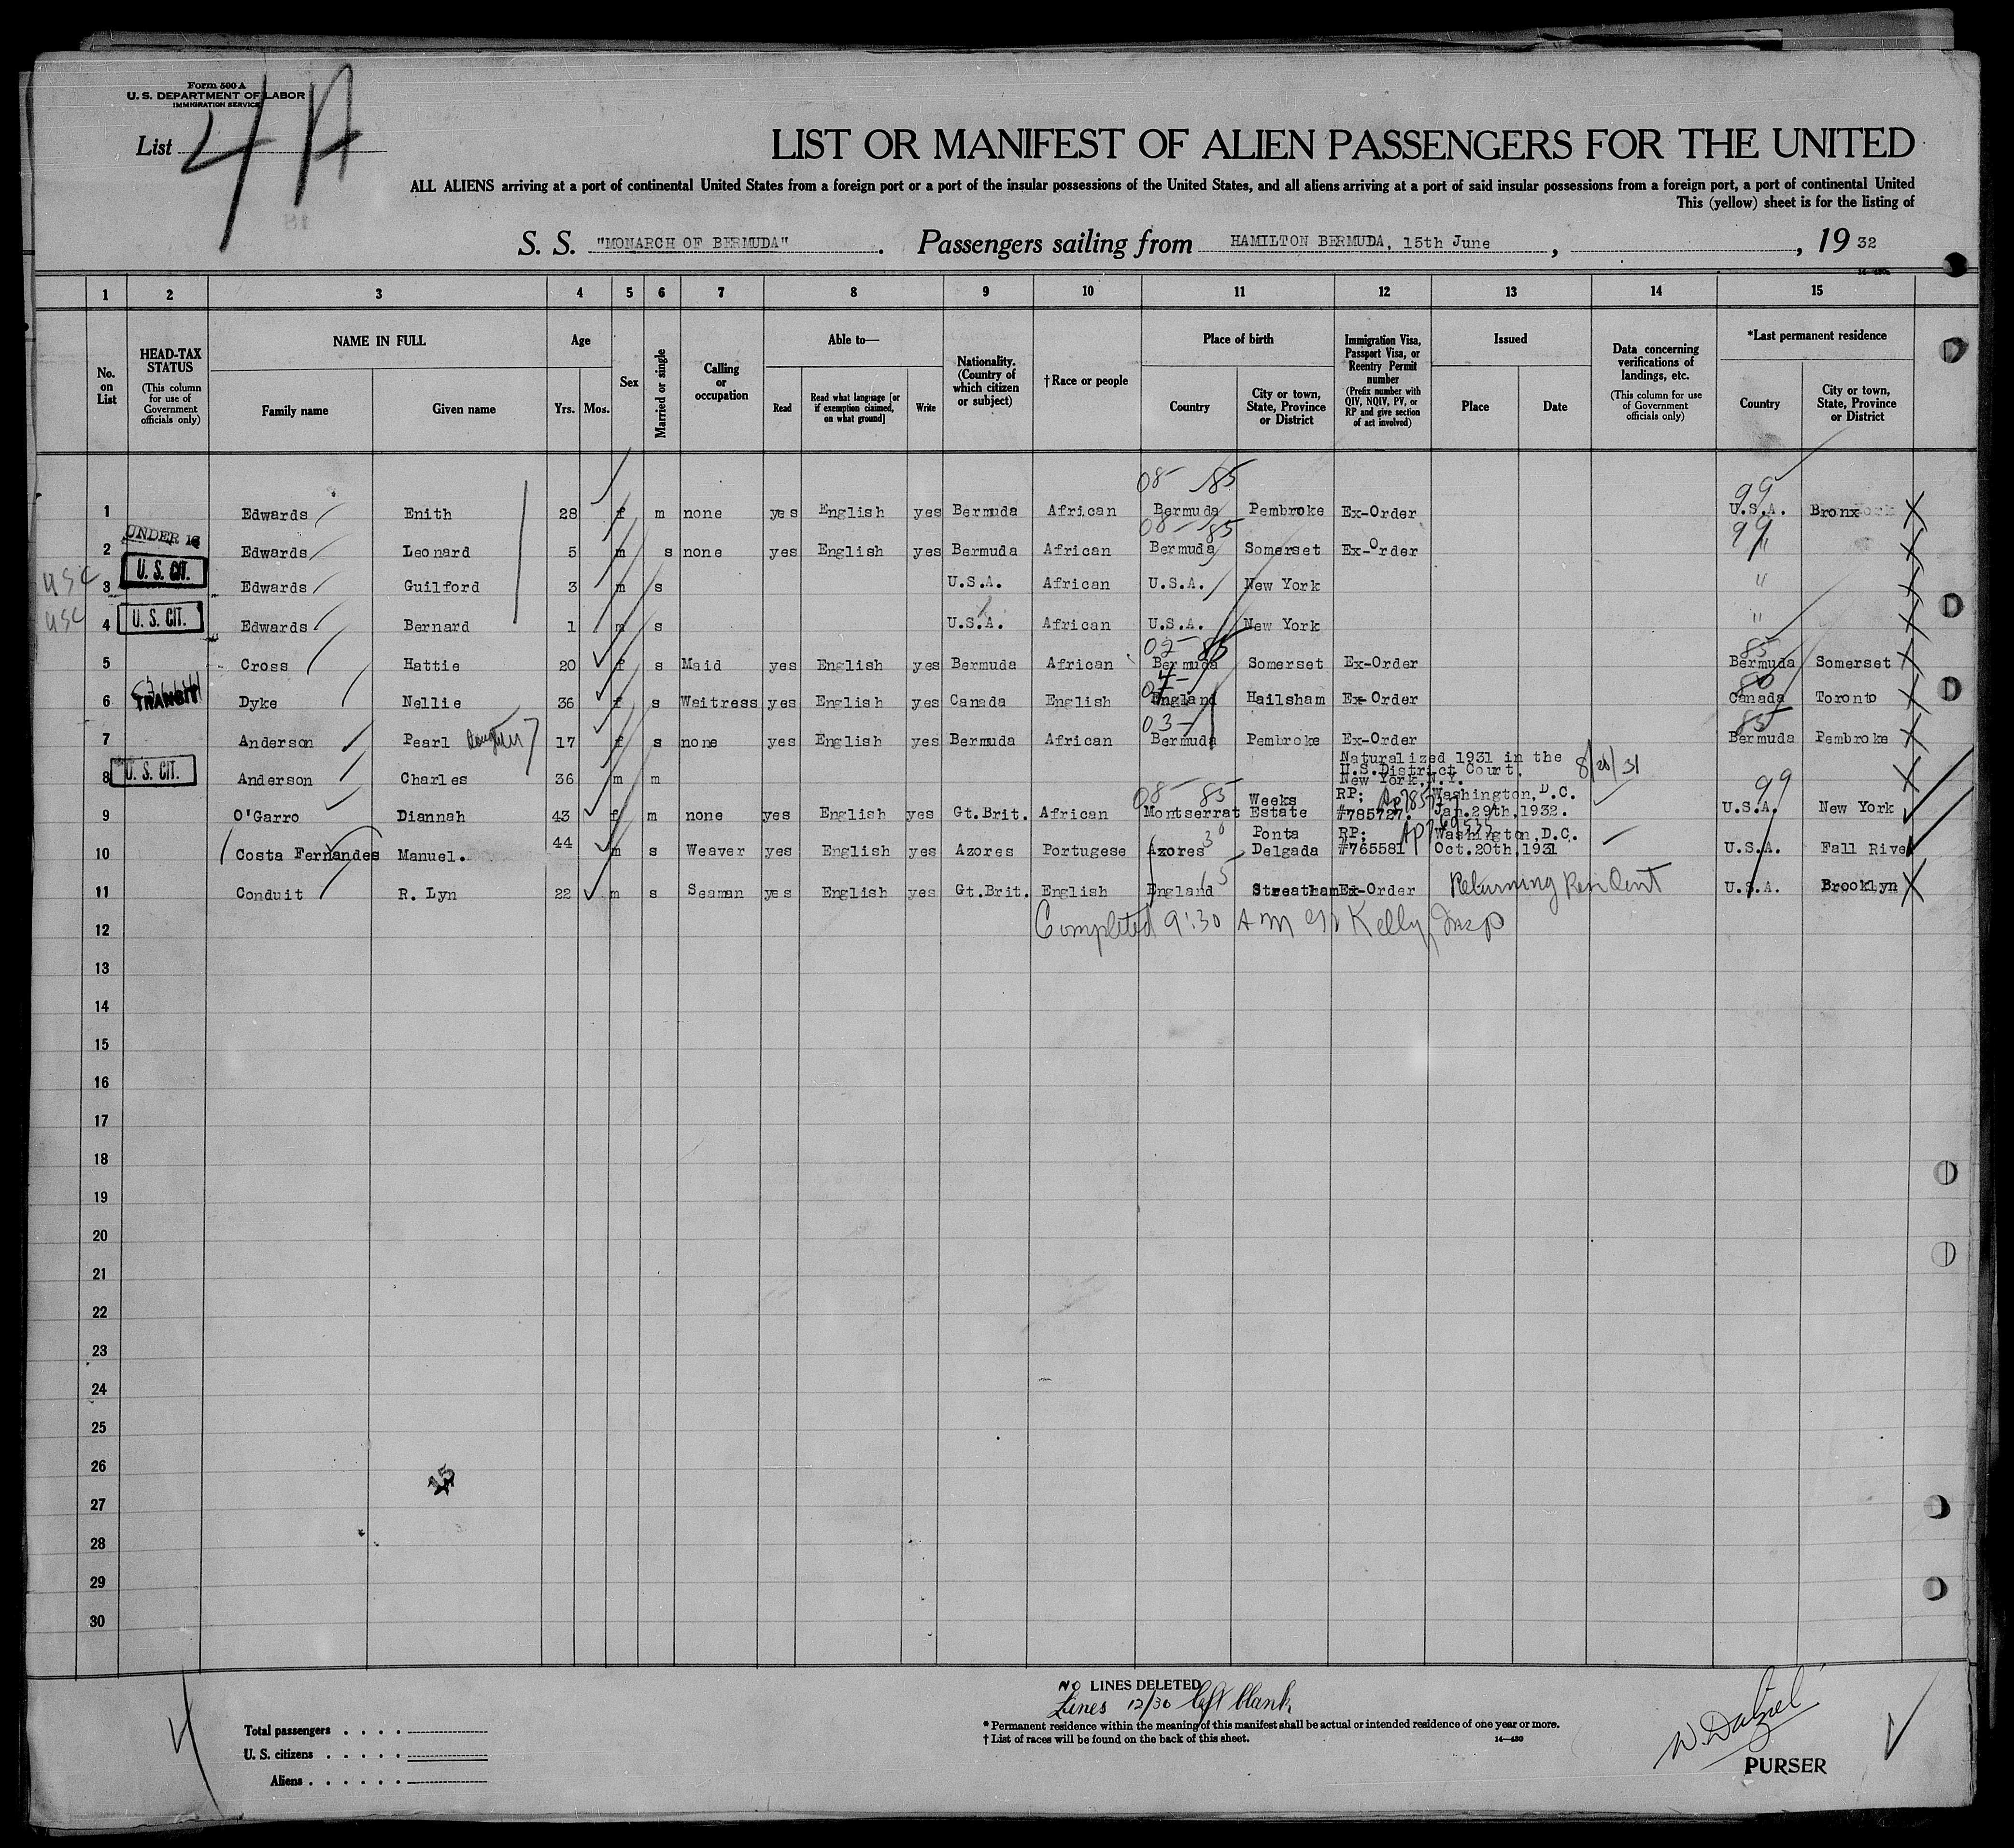 Form 500 A
U. S. DEPARTMENT OF LABOR
IMMIGRATION SERVICE
List 4 A
LIST OR MANIFEST OF ALIEN PASSENGERS FOR THE UNITED
ALL ALIENS arriving at a port of continental United States from a foreign port or a port of the insular possessions of the United States, and all aliens arriving at a port of said insular possessions from a foreign port, a port of continental United
This (yellow) sheet is for the listing of
S. S. "MONARCH OF BERMUDA". Passengers sailing from HAMILTON BERMUDA, 15th June, , 19 32
14-430a
1 2 3 4 5 6 7 8 9 10 11 12 13 14 15
No. on List
HEAD-TAX STATUS (This column for use of Government officials only)
NAME IN FULL Family name Given name
Age Yrs. Mos.
Sex
Married or single
Calling or occupation
Able to— Read Read what language [or if exemption claimed, on what ground] Write
Nationality. (Country of which citizen or subject)
† Race or people
Place of birth Country City or town, State, Province or District
Immigration Visa, Passport Visa, or Reentry Permit number (Prefix number with QIV, NQIV, PV, or RP and give section of act involved)
Issued Place Date
Data concerning verifications of landings, etc. (This column for use of Government officials only)
*Last permanent residence Country City or town, State, Province or District
08- 85 99
1 Edwards Enith 28 f m none yes English yes Bermuda African Bermuda Pembroke Ex-Order U.S.A. Bronx
UNDER 16 08- 85 99
2 Edwards Leonard 5 m s none yes English yes Bermuda African Bermuda Somerset Ex-Order "
USC 3 U. S. CIT. Edwards Guilford 3 m s U.S.A. African U.S.A. New York "
USC 4 U. S. CIT. Edwards Bernard 1 m s U.S.A. African U.S.A. New York "
02- 85 85
5 Cross Hattie 20 f s Maid yes English yes Bermuda African Bermuda Somerset Ex-Order Bermuda Somerset
6 TRANSIT Dyke Nellie 36 f s Waitress yes English yes Canada English England Hailsham Ex-Order Canada Toronto
03- 85
7 Anderson Pearl daughter 17 f s none yes English yes Bermuda African Bermuda Pembroke Ex-Order Bermuda Pembroke
8 U. S. CIT. Anderson Charles 36 m m Naturalized 1931 in the U.S.District Court. New York,N.Y. 8/28/31
08- 85 99
9 O'Garro Diannah 43 f m none yes English yes Gt.Brit. African Montserrat Weeks Estate RP; #785727. Washington,D.C. Jan.29th,1932. U.S.A. New York
10 Costa Fernandes Manuel. 44 m s Weaver yes English yes Azores Portugese Azores Ponta Delgada RP; #765581 Washington,D.C. Oct.20th,1931 U.S.A. Fall River
11 Conduit R. Lyn 22 m s Seaman yes English yes Gt.Brit. English England Streatham Ex-Order Returning Resident U.S.A. Brooklyn
12 Completed 9:30 AM Kelly Insp
13
14
15
16
17
18
19
20
21
22
23
24
25
26
27
28
29
30
NO LINES DELETED
Lines 12/30 left blank.
Total passengers . . . .
U. S. citizens . . . . .
Aliens . . . . . .
* Permanent residence within the meaning of this manifest shall be actual or intended residence of one year or more.
† List of races will be found on the back of this sheet.
14—430
W. Dalziel
PURSER